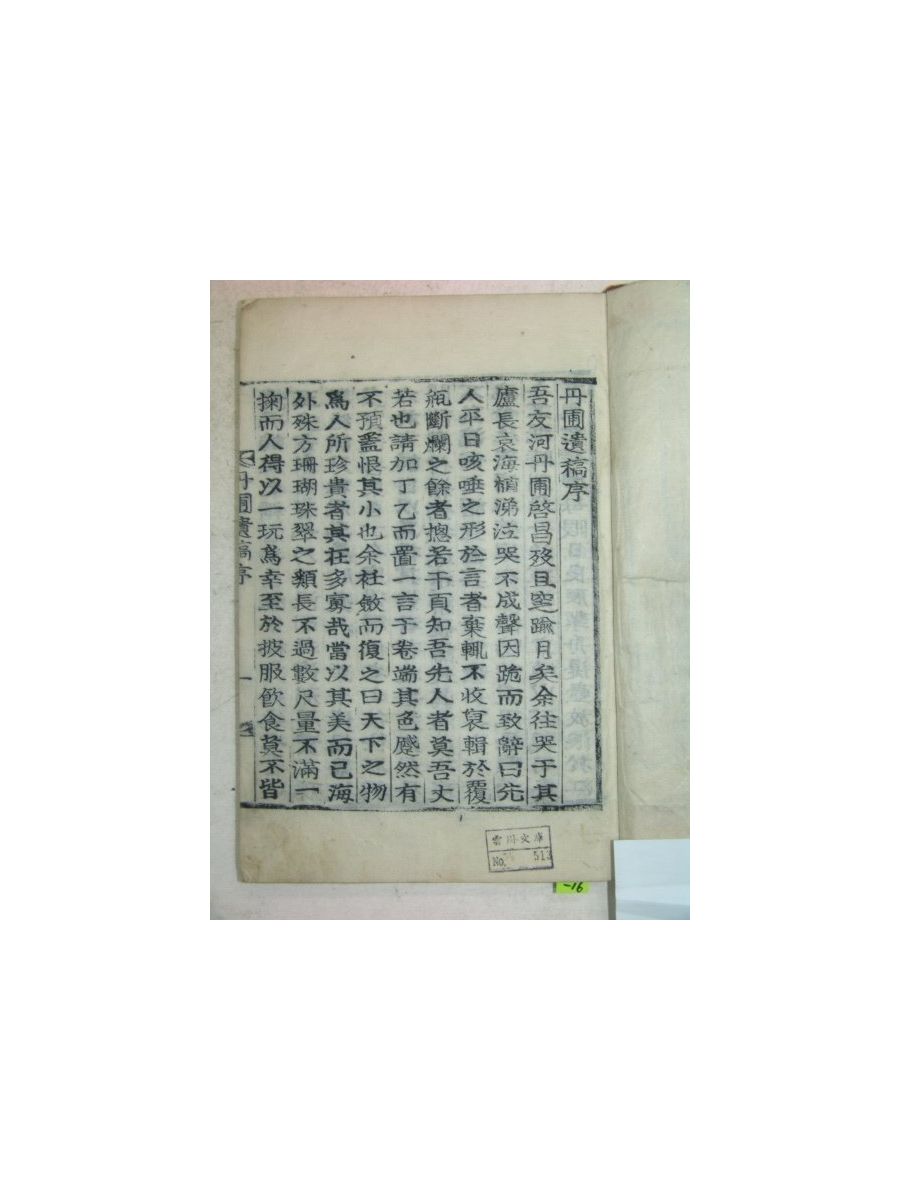 丹圃遺稿序
吾友河丹圃啓昌歿且窆踰月矣余往哭于其
廬長哀海楨涕泣哭不成聲因跪而致辭曰先
人平日咳唾之形於言者棄輒不收裒輯於覆
瓿斷爛之餘者摠若干頁知吾先人者莫吾丈
若也請加丁乙而置一言于卷端其色蹙然有
不預盖恨其小也余衽斂而復之曰天下之物
爲人所珍貴者其在多寡哉當以其美而已海
外殊方珊瑚珠翠之類長不過數尺量不滿一
掬而人得以一玩爲幸至於披服飮食莫不皆
丹圃遺稿序
一
雲川文庫
No. 513
-16